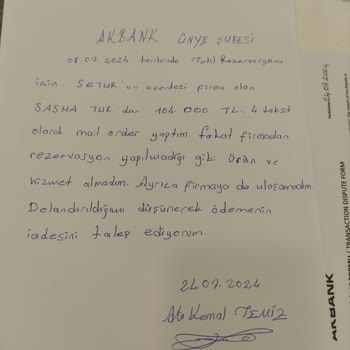 AKBANK ÜNYE ŞUBESİ
08.07.2024 tarihinde Tatil Rezervasyonu
için SETUR'un acentesi firma olan
SASHA TUR'dan 104.000 TL. 4 taksit
olarak mail order yaptım. Fakat firmadan
rezervasyon yapılmadığı gibi ürün ve
hizmet almadım. Ayrıca firmaya da ulaşamadım.
Dolandırıldığımı düşünerek ödemenin
iadesini talep ediyorum.
24.07.2024
Ali Kemal TEMİZ
24.07.2024
/ TRANSACTION DISPUTE FORM
AKBANK